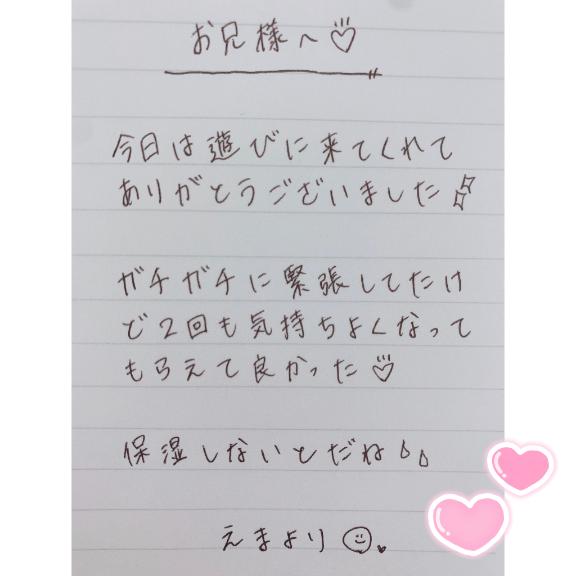 お兄様へ♡
今日は遊びに来てくれて
ありがとうございました
ガチガチに緊張してたけ
ど2回も気持ちよくなって
もらえて良かった♡
保湿しないとだね
えまより